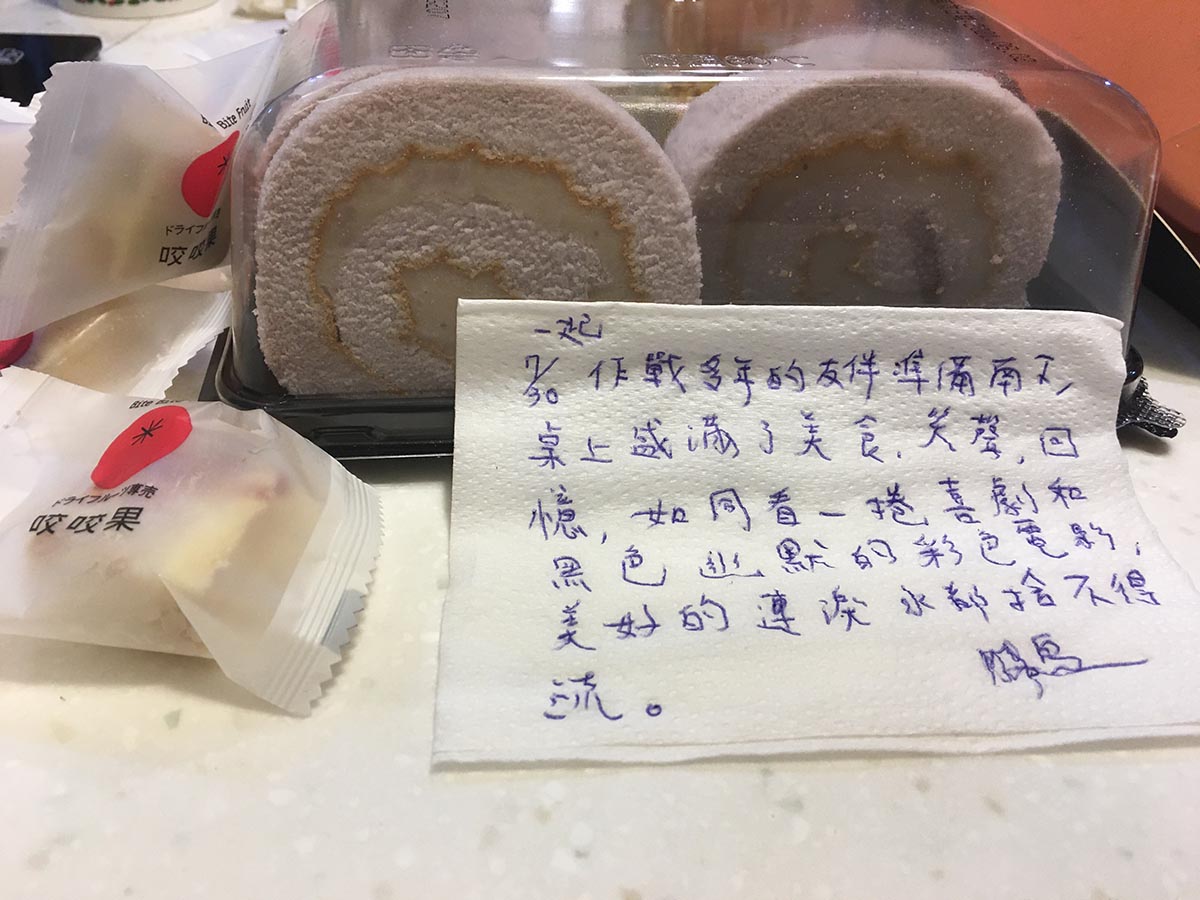 Bite Fruit
ドライフ
咬咬果
ドライフルーツ專売
咬咬果
一起
7/30 作戰多年的友件準備南下,
桌上盛滿了美食、笑聲,回
憶,如同看一捲喜劇和
黑色幽默的彩色電影,
美好的連淚水都捨不得
流。